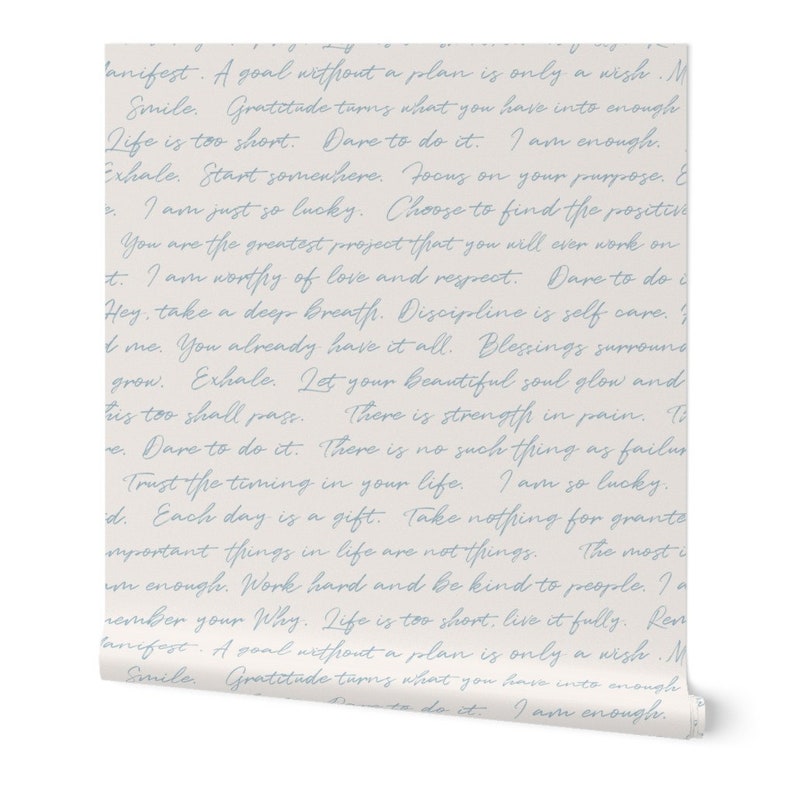 Life is
Manifest. A goal without a plan is only a wish. M
Smile. Gratitude turns what you have into enough
Life is too short. Dare to do it. I am enough.
Exhale. Start somewhere. Focus on your purpose. E
e. I am just so lucky. Choose to find the positive
You are the greatest project that you will ever work on
t. I am worthy of love and respect. Dare to do i
Hey, take a deep breath. Discipline is self care.
d me. You already have it all. Blessings surroun
grow. Exhale. Let your beautiful soul glow and
this too shall pass. There is strength in pain. Th
re. Dare to do it. There is no such thing as failur
Trust the timing in your life. I am so lucky.
d. Each day is a gift. Take nothing for grante
important things in life are not things. The most i
am enough. Work hard and be kind to people. I a
member your Why. Life is too short, live it fully. Rem
Manifest. A goal without a plan is only a wish. M
Smile. Gratitude turns what you have into enough
Dare to do it. I am enough.